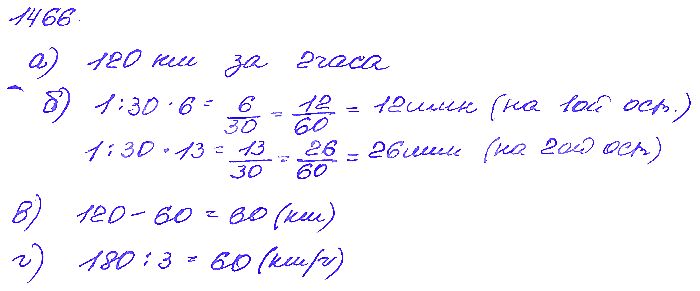 1466.
а) 120 км за 2 часа
б) 1 : 30 · 6 = 6/30 = 12/60 = 12 мин (на 1ой ост.)
1 : 30 · 13 = 13/30 = 26/60 = 26 мин (на 2ой ост)
в) 120 - 60 = 60 (км)
г) 180 : 3 = 60 (км/ч)